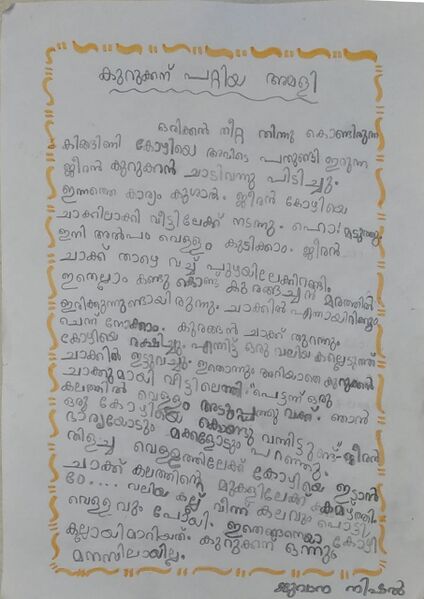 കുറുക്കന് പറ്റിയ അമളി
ഒരിക്കൽ തീറ്റ തിന്നു കൊണ്ടിരുന്ന
കിങ്ങിണി കോഴിയെ അവിടെ പതുങ്ങി ഇരുന്ന
ജീരൻ കുറുക്കൻ ചാടിവന്നു പിടിച്ചു.
ഇന്നത്തെ കാര്യം കുശാൽ. ജീരൻ കോഴിയെ
ചാക്കിലാക്കി വീട്ടിലേക്ക് നടന്നു. ഹൊ! മടുത്തു
ഇനി അൽപം വെള്ളം കുടിക്കാം. ജീരൻ
ചാക്ക് താഴെ വച്ച് പുഴയിലേക്കിറങ്ങി.
ഇതെല്ലാം കണ്ടു കൊണ്ട് കുരങ്ങച്ചൻ മരത്തിൽ
ഇരിക്കുന്നുണ്ടായിരുന്നു. ചാക്കിൽ എന്തായിരിക്കും
ചെന്ന് നോക്കാം. കുരങ്ങൻ ചാക്ക് തുറന്നു
കോഴിയെ രക്ഷിച്ചു. എന്നിട്ട് ഒരു വലിയ കല്ലെടുത്ത്
ചാക്കിൽ ഇട്ടുവച്ചു. ഇതൊന്നും അറിയാതെ കുറുക്കൻ
ചാക്കുമായി വീട്ടിലെത്തി. "പെട്ടന്ന് ഒരു
കലത്തിൽ വെള്ളം അടുപ്പത്തു വക്ക്. ഞാൻ
ഒരു കോഴിയെ കൊണ്ടു വന്നിട്ടുണ്ട്" ജീരൻ
ഭാര്യയോടും മക്കളോടും പറഞ്ഞു.
തിളച്ച വെള്ളത്തിലേക്ക് കോഴിയെ ഇടാൻ
ചാക്ക് കലത്തിന്റെ മുകളിലേക്ക് കമഴ്ത്തി.
ഠോ.... വലിയ കല്ല് വീണ് കലവും പൊട്ടി,
വെള്ളവും പോയി. ഇതെങ്ങനെയാ കോഴി
കല്ലായിമാറിയത്. കുറുക്കന് ഒന്നും
മനസിലായില്ല.
ജുവാന നിഷൽ